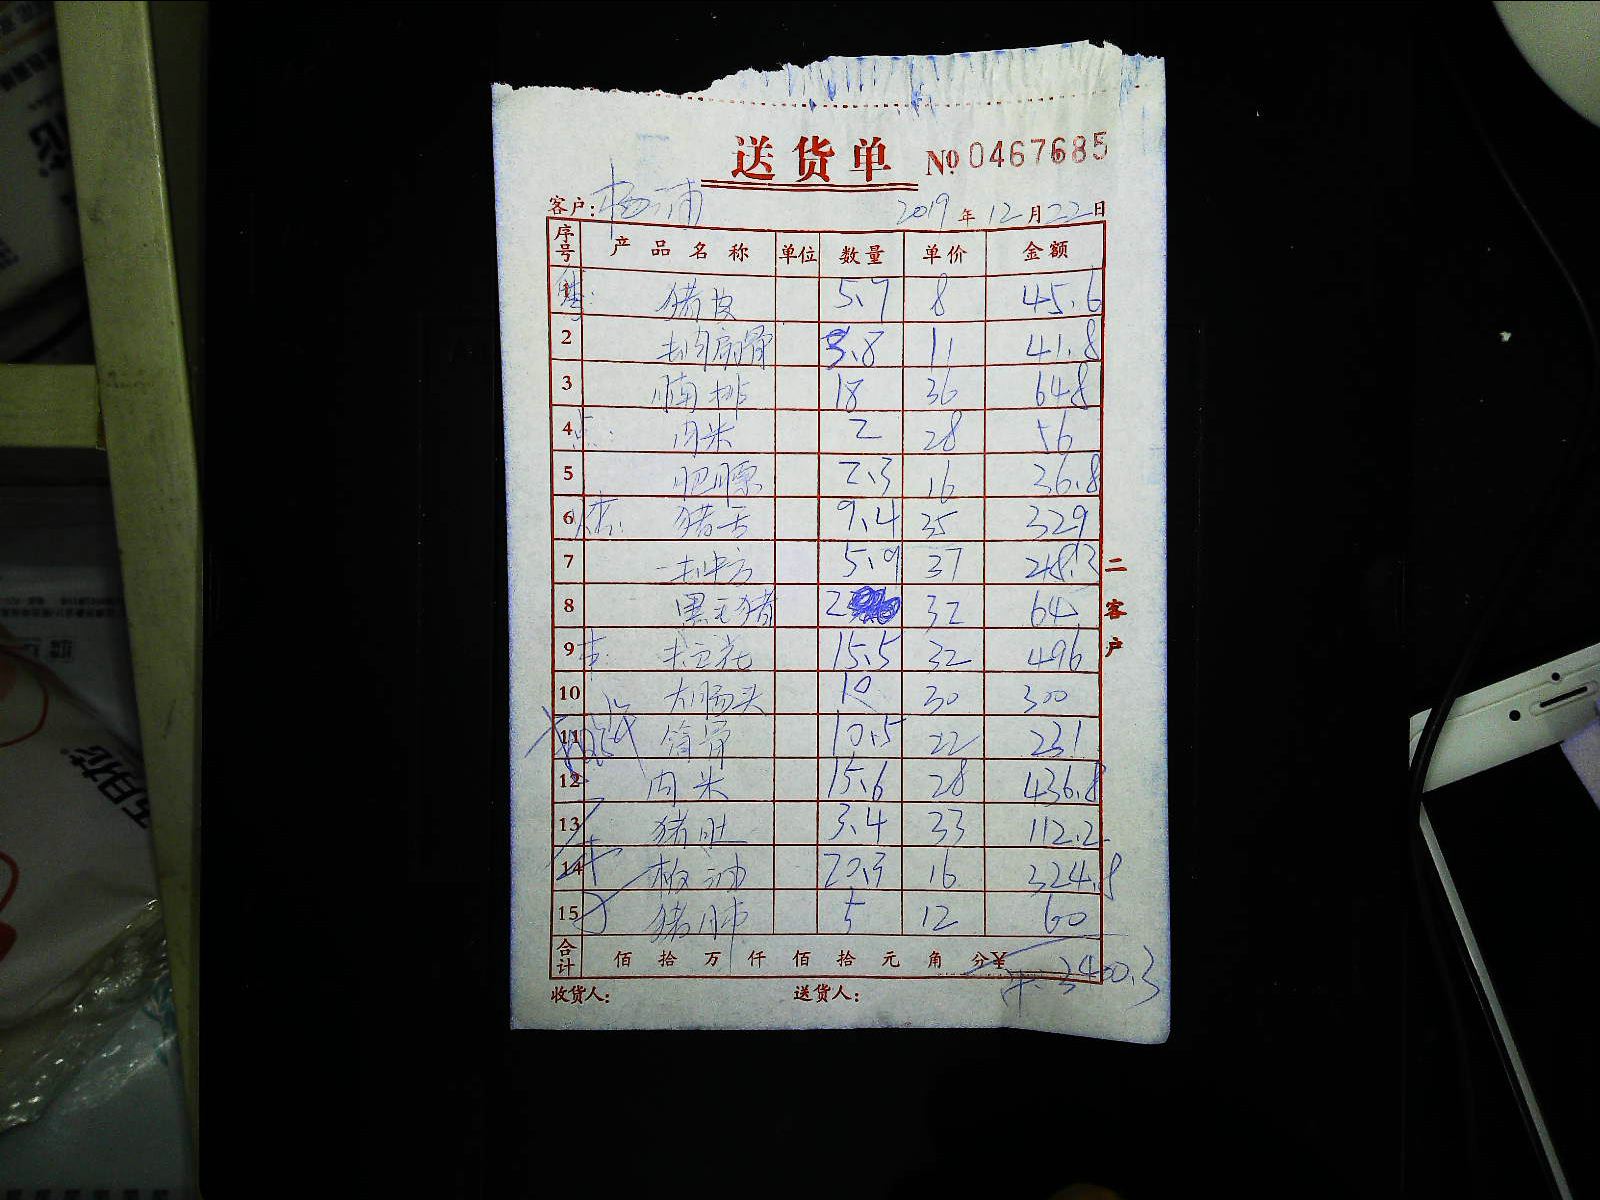 送货单 №0467685
客户：杨浦 2019年12月22日
序号 产品名称 单位 数量 单价 金额
猪皮 5.7 8 45.6
2 扇骨 3.8 11 41.8
3 腩排 18 36 648
4 肉米 2 28 56
5 肥膘 2.3 16 36.8
6 猪舌 9.4 35 329
7 5.9 37 218.3
8 黑毛猪 2 32 64
9 15.5 32 496
10 大肠头 10 30 300
11 筒骨 10.5 22 231
12 肉米 15.6 28 436.8
13 猪肚 3.4 33 112.2
14 板油 20.3 16 324.8
15 猪肺 5 12 60
合计 佰 拾 万 仟 佰 拾 元 角 分 ¥ 3400.3
收货人： 送货人：
二客户